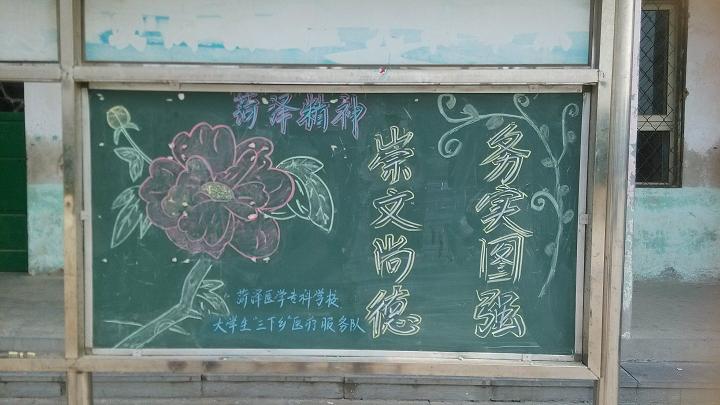 菏泽精神
务实图强
崇文尚德
菏泽医学专科学校
大学生“三下乡”医疗服务队